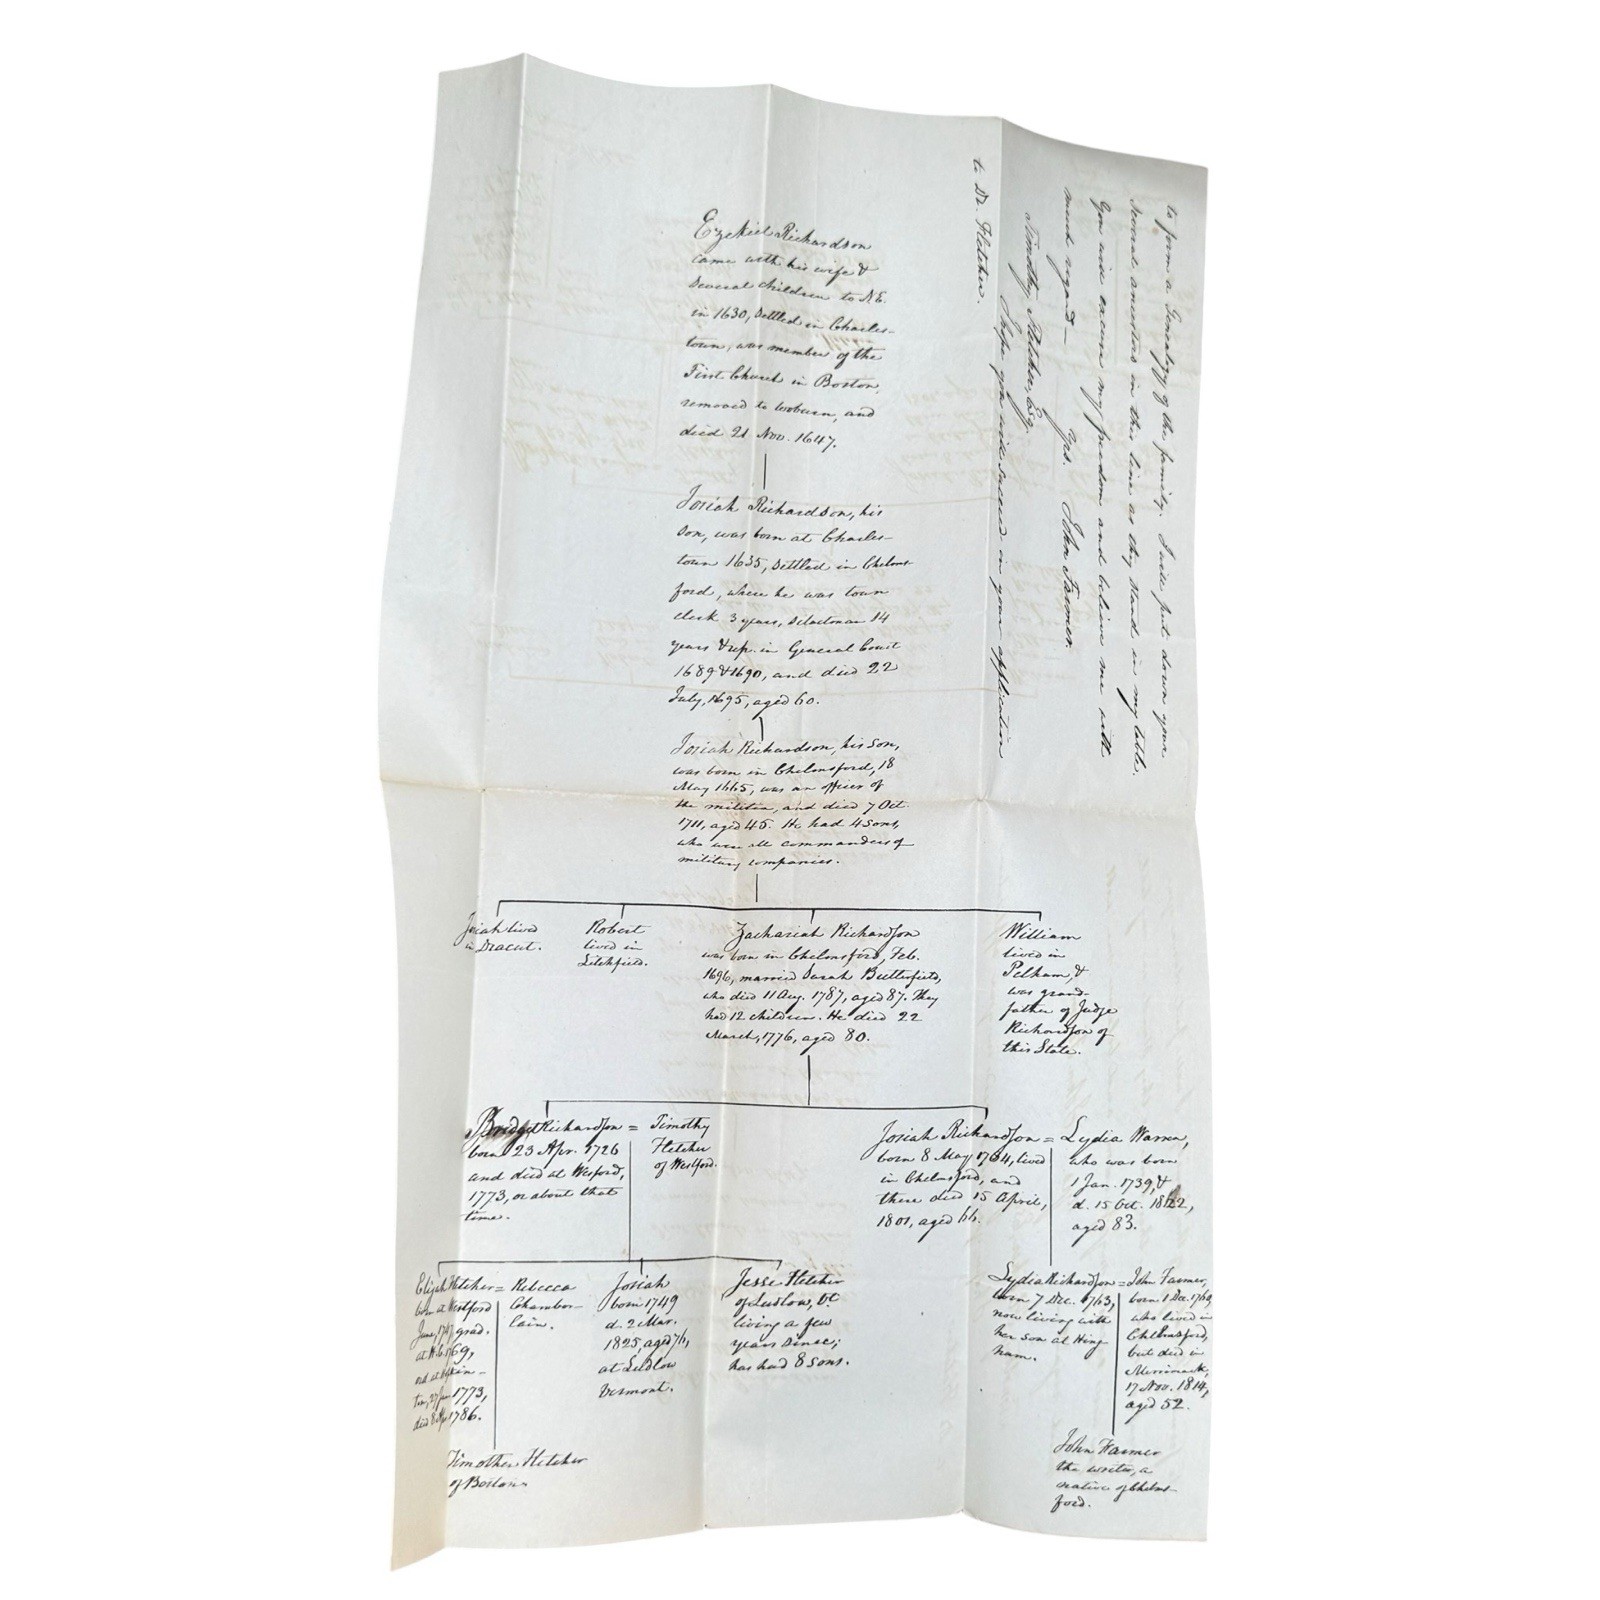 to form a Genealogy of the family. I will put down your
several ancestors in this line as they stand in my table.
You will excuse my freedom and believe me with
much regard — Yrs. John Farmer.
Timothy Fletcher, Esq.
I hope you will succeed in your application
to Dr. Fletcher.
Ezekiel Richardson
came with his wife &
several children to N.E.
in 1630, settled in Charles-
town, was member of the
First Church in Boston,
removed to Woburn, and
died 21 Nov. 1647.
Josiah Richardson, his
son, was born at Charles-
town 1635, settled in Chelms-
ford, where he was town
clerk 3 years, selectman 14
years & rep. in General Court
1689 & 1690, and died 22
July, 1695, aged 60.
Josiah Richardson, his son,
was born in Chelmsford, 18
May 1665, was an officer of
the militia, and died 7 Oct.
1711, aged 45. He had 4 sons,
who were all commanders of
military companies.
Josiah lived
in Dracut.
Robert
lived in
Litchfield.
Zachariah Richardson
was born in Chelmsford, Feb.
1696, married Sarah Butterfield,
who died 11 Aug. 1787, aged 87. They
had 12 children. He died 22
March, 1776, aged 80.
William
lived in
Pelham, &
was grand-
father of Judge
Richardson of
this State.
Bridget Richardson =
born 23 Apr. 1726
and died at Westford,
1773, or about that
time.
Timothy
Fletcher
of Westford.
Josiah Richardson =
born 8 May 1734, lived
in Chelmsford, and
there died 15 April,
1801, aged 66.
Lydia Warren,
who was born
1 Jan. 1739, &
d. 15 Oct. 1822,
aged 83.
Elijah Fletcher =
born at Westford
June, 1747, grad.
at H.C. 1769,
ord. at Hopkin-
ton, 27 Jan 1773,
died 8 Apr. 1786.
Rebecca
Chamber-
lain.
Josiah
born 1749
d. 2 Mar.
1825, aged 76,
at Ludlow
Vermont.
Jesse Fletcher
of Ludlow, Vt.
living a few
years since;
has had 8 sons.
Lydia Richardson =
born 7 Dec. 1763,
now living with
her son at Hing-
ham.
John Farmer,
born 1 Dec. 1760,
who lived in
Chelmsford,
but died in
Merrimack,
17 Nov. 1814,
aged 52.
Timothy Fletcher
of Boston.
John Farmer
the writer, a
native of Chelms-
ford.